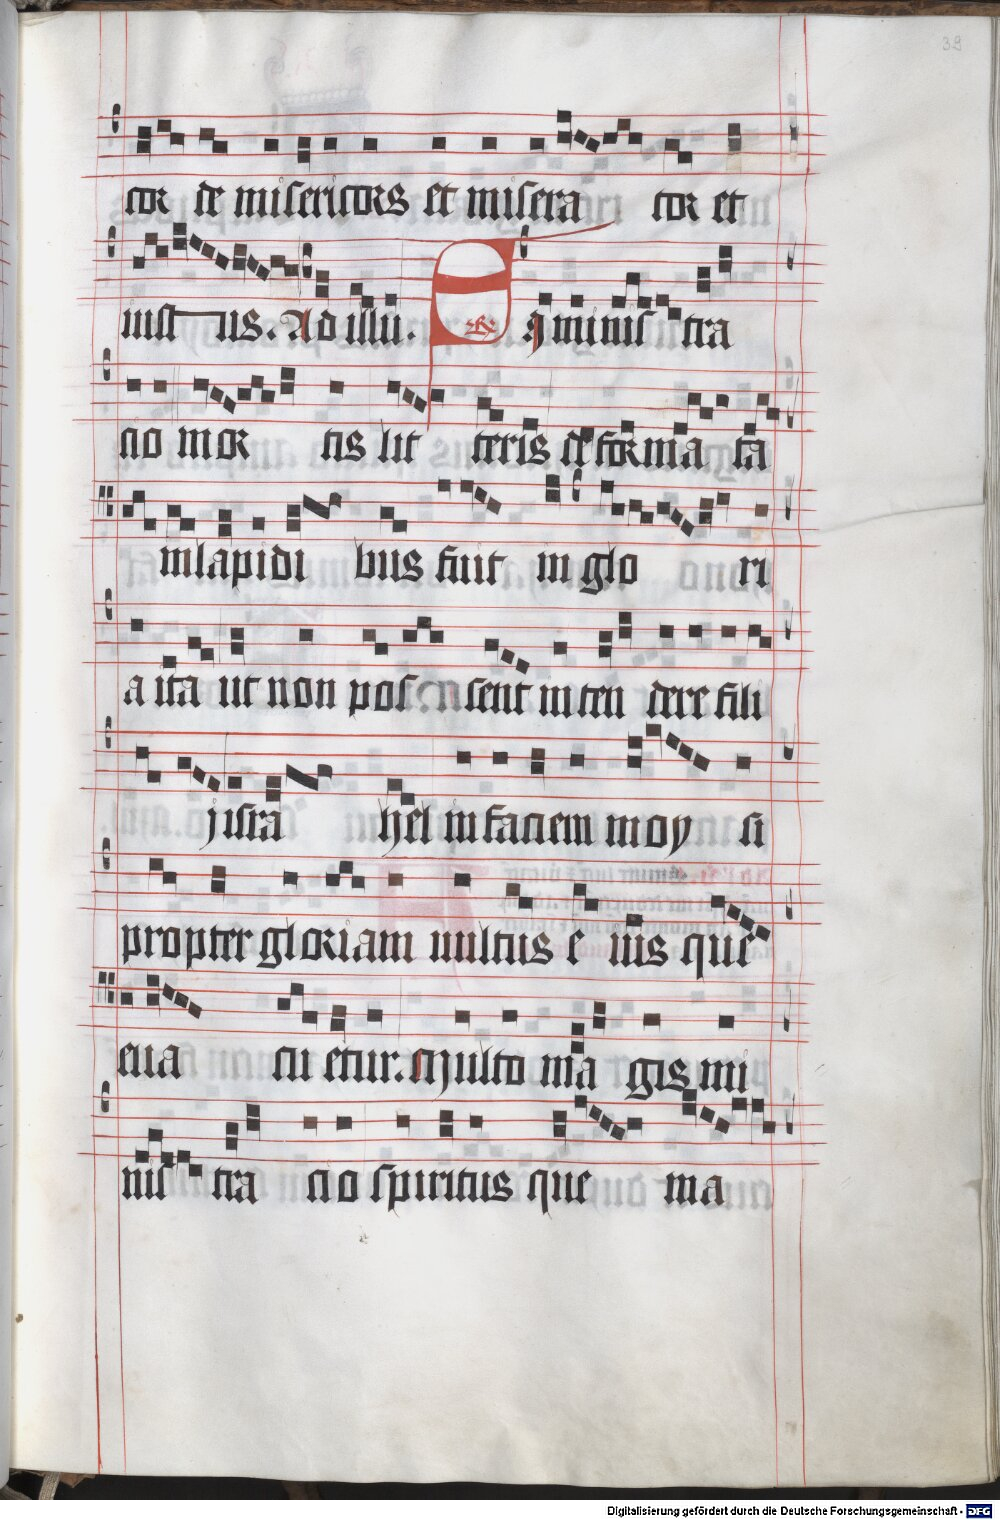 39
tor de misericors et misera tor et
iust us. Ad illu. S R q minis tra
cio mor tis lit teris de forma ta
in lapidi bus fuit in glo ri
a ita ut non pos sent inten dere fili
j isra hel in faciem moy si
propter gloriam vultus e ius que
eua cu etur. Multo ma gis mi
nis tra cio spiritus que ma
Digitalisierung gefördert durch die Deutsche Forschungsgemeinschaft - DFG